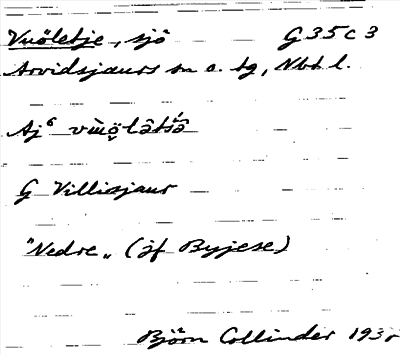 Vuöletje, sjö G35c3
Arvidsjaurs sn o. tg, Nbt l.
Aj⁶
G Villisjaur
"Nedre" (jf Byjese)
Björn Collinder 193